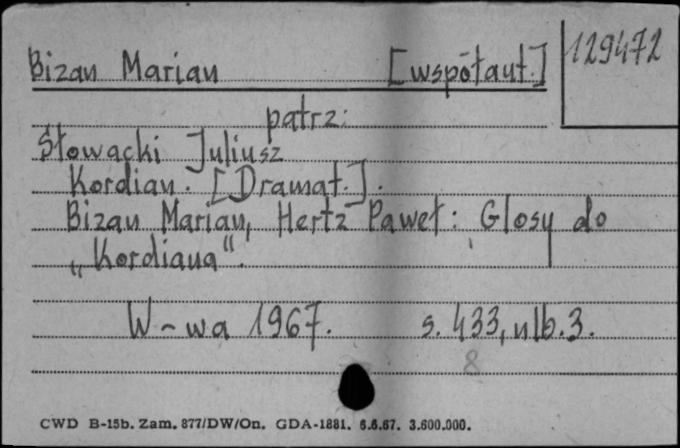 Bizan Marian [współaut.] 129472
patrz:
Słowacki Juliusz
Kordian. [Dramat.].
Bizan Marian, Hertz Paweł: Glosy do
„Kordiana".
W-wa 1967. s. 433, nlb. 3.
8
CWD B-15b. Zam. 877/DW/On. GDA-1881. 6.6.67. 3.600.000.